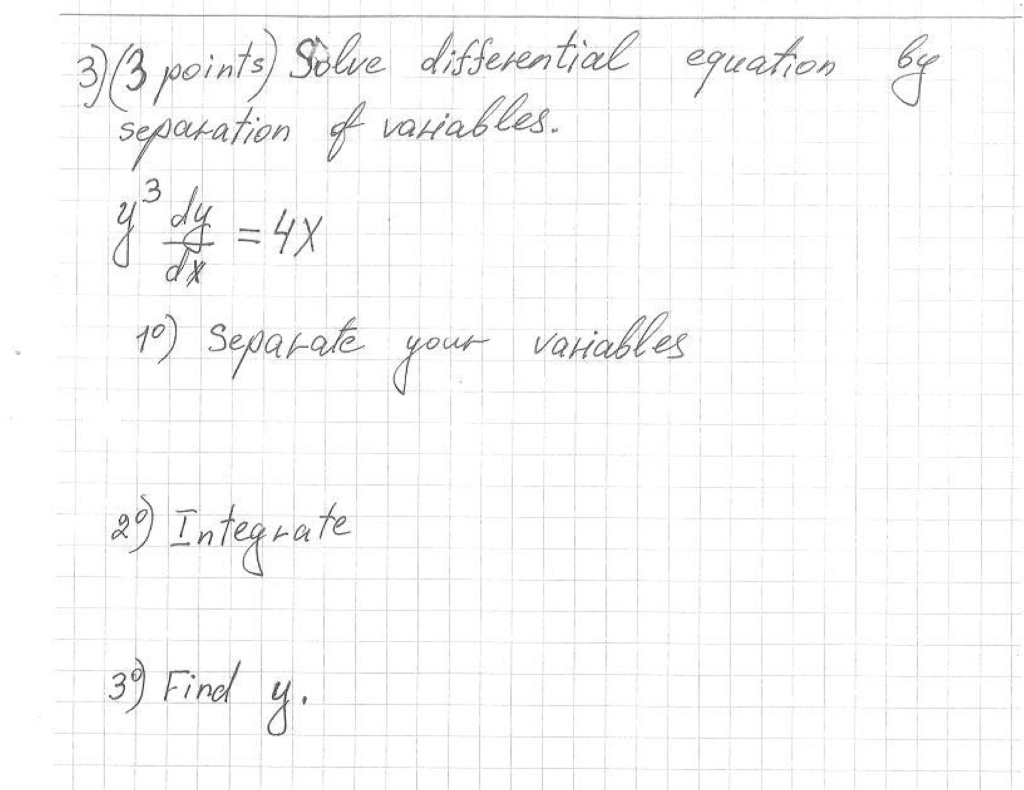 3) (3 points) Solve differential equation by
separation of variables.
y³ dy/dx = 4x
1º) Separate your variables
2º) Integrate
3º) Find y.